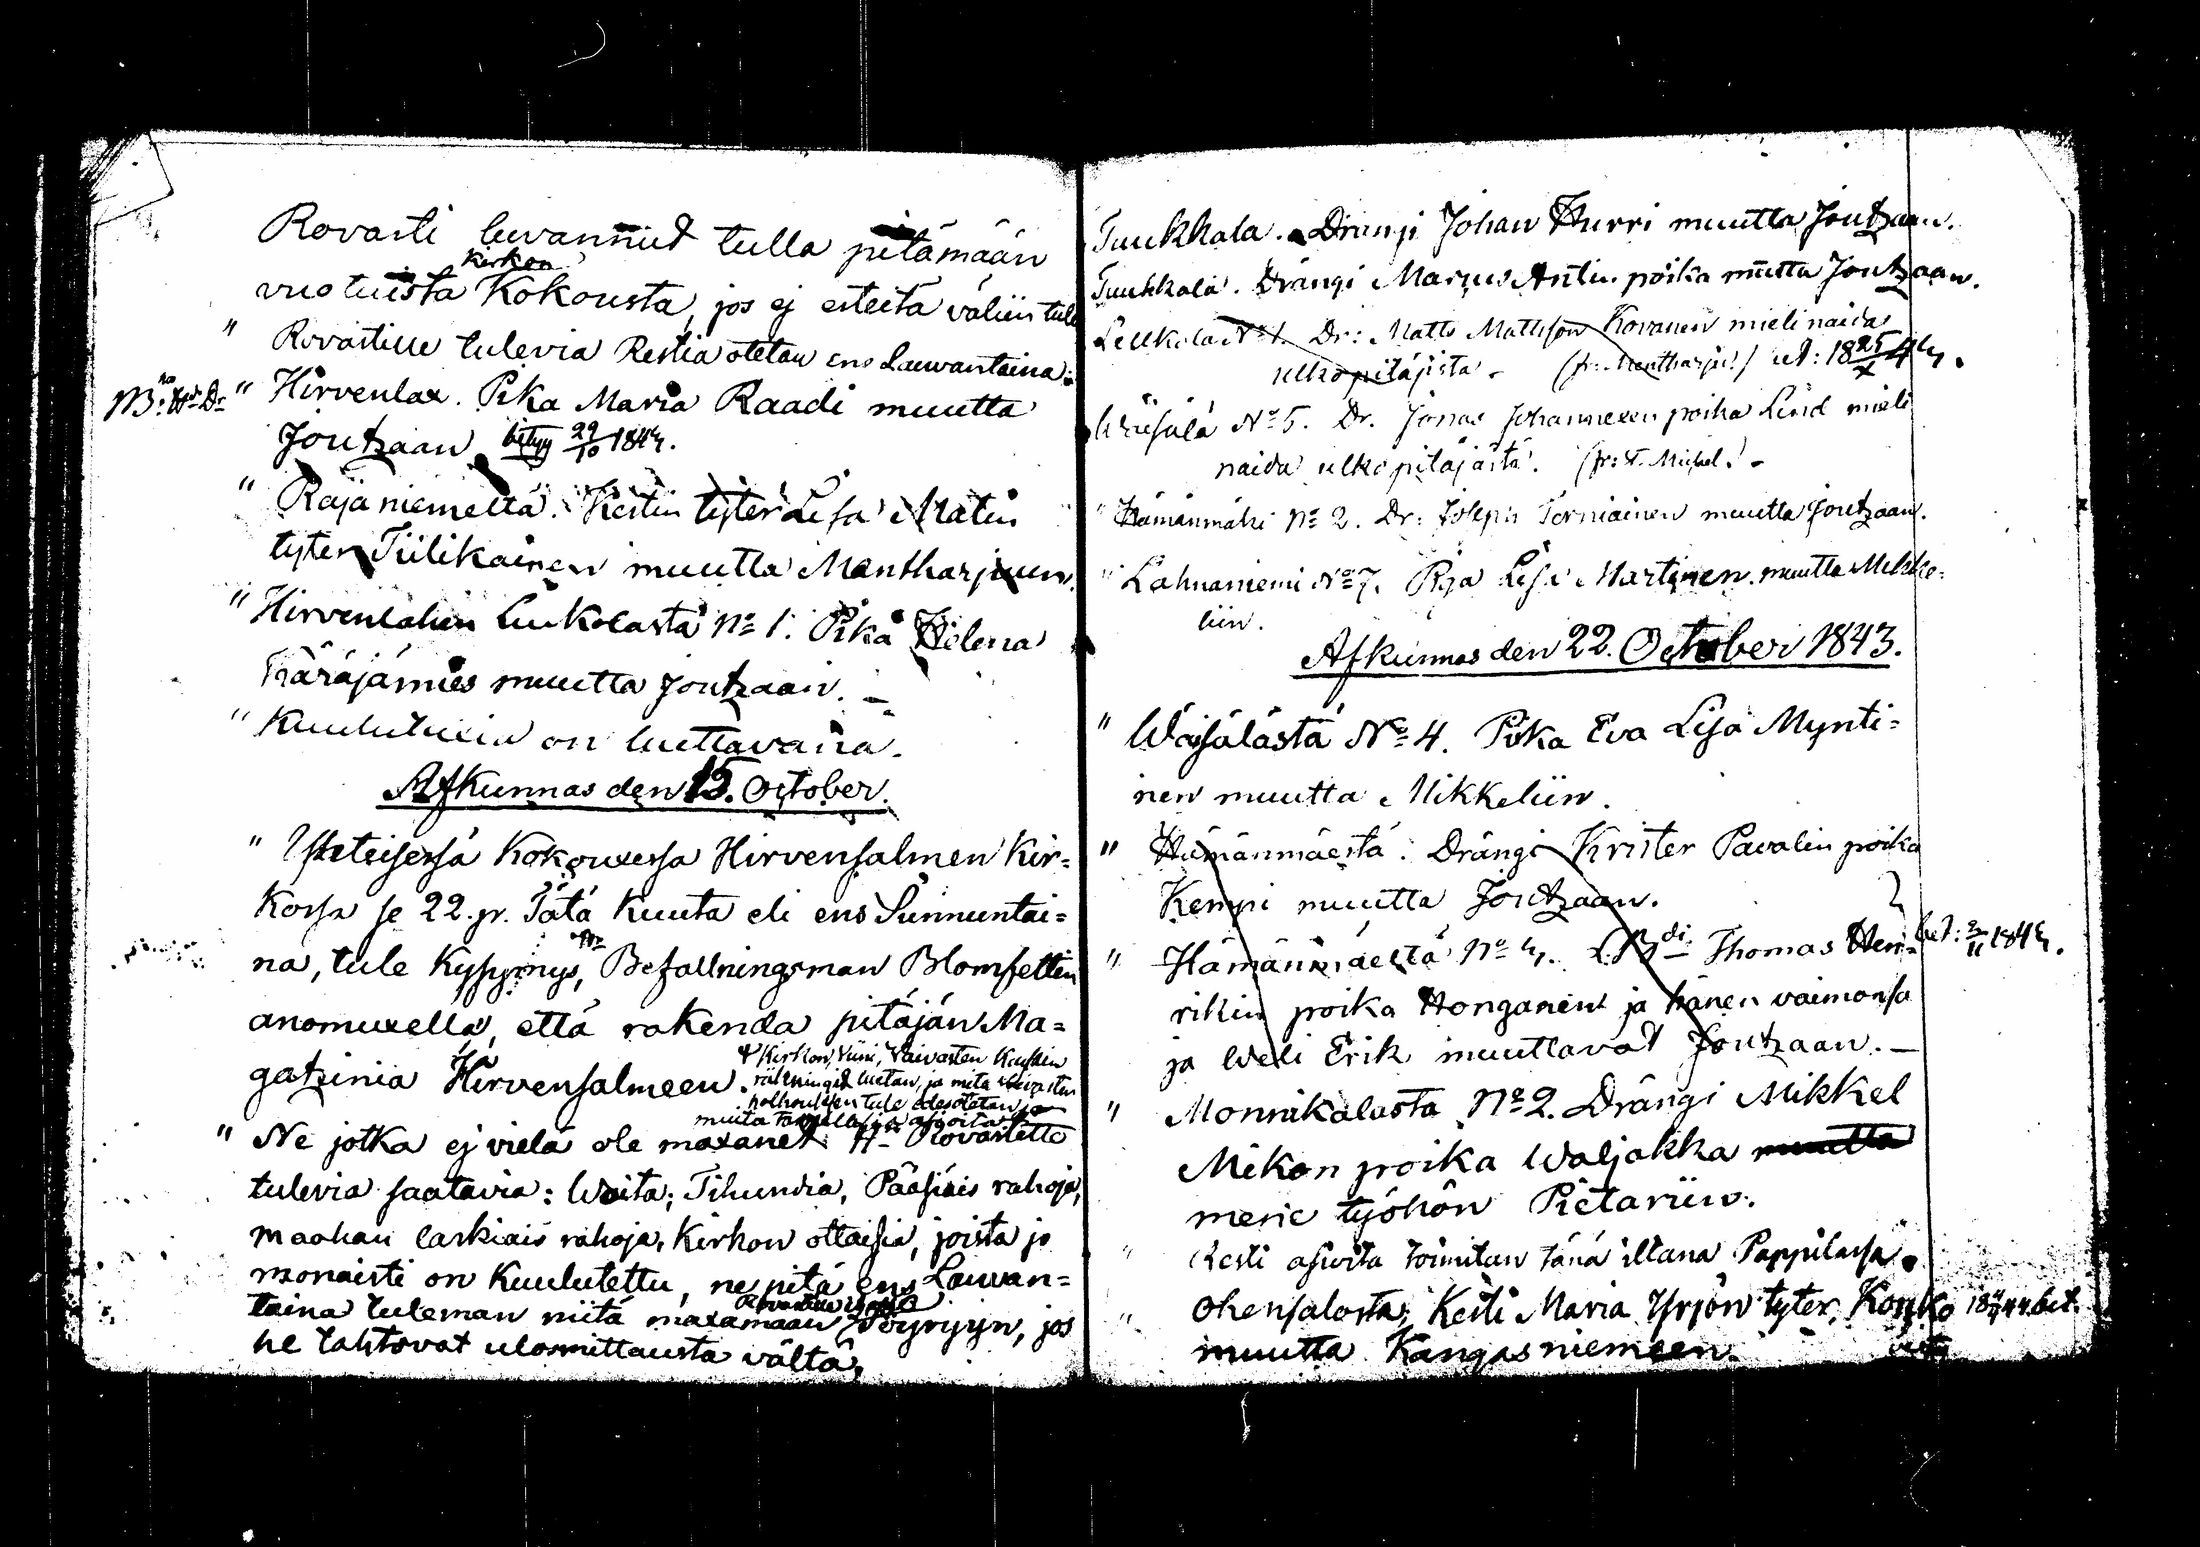 Rovasti luvannud tulla pitämään
Kirkon
vuotuista Kokousta, jos ej esteitä väliin tule
" Rovastille tulevia Restia otetan ens Lauvantaina.
" Hirvenlax. Pika Maria Raadi muutta
Joutzaan betyg 29/10 1844.
" Rajaniemeltä. Kestin tyter Lisa Matin
tyter Tiilikainen muutta Mantharjuun.
" Hirvenlahen Liukolasta No 1. Pika Helena
Käräjämies muutta Joutzaan. –
" Kuulutuxia on luettavana.
Afkunnas den 15. October.
" Yhteisesä Kokouxessa Hirvensalmen Kir=
kossa se 22. p. Tätä Kuuta eli ens Sunnuntai=
na, tule Kysymys, Befallningsman Blomfeltin
anomuxella, että rakenda pitäjän Ma=
gatzinia Hirvensalmeen.
& Kirkon, Viini, Vaivasten Kassan
räkningid luetan, ja mitä Vaivasten
holhouxen tule edesotetan ja
muita
" Ne jotka ej vielä ole maxanet Hr Rovastille
tulevia saatavia: Woita, Tihundia, Pääsiäis rahoja,
maahan laskiais rahoja, Kirkon ottaisia, joista jo
monaisti on Kuulutettu, ne pitä ens Lauvan=
taina tuleman niitä maxamaan Pöyryyn, jos
he tahtovat ulosmittausta vältä,
Tuukkala. Drängi Johan Hurri muutta Joutzaan.
Tuukkala. Drängi Marcus Antin poika mutta Joutzaan.
Leukola No 1. Dr: Matts Mattsson Kovanen mieli naida
ulko pitäjistä – (fr: Mentharju!) ut: 18 25/X 44.
Wäisälä No 5. Dr. Jonas Johannexen poika Lind mieli
naida ulkopitäjästä. (fr: St. Michel.) –
" Hämänmäki No 2. Dr: Joseph Torniainen muutta Joutzaan.
" Lahnaniemi No 7. Piga Lisa Martinen muutta Mikke=
liin.
Afkunnas den 22. October 1843.
" Wäisälästä No 4. Pika Eva Lisa Mynti=
nen muutta Mikkeliin.
" Hämänmäestä. Drängi Krister Pavalin poika
Kempi muutta Joutzaan.
" Hämänmäestä No 4. Thomas Hen=
bet: 3/11 1844.
rikin poika Honganen ja hänen vaimonsa
ja Weli Erik muuttavat Joutzaan. –
" Monnikalasta No 2. Drängi Mikkel
Mikon poika Waljakka muutta
mene työhön Pietariin.
" Kesti asioita toimitan tänä iltana Pappilassa.
" Ohensalosta, Kesti Maria Yrjön tyter, Konko
muutta Kangasniemeen.